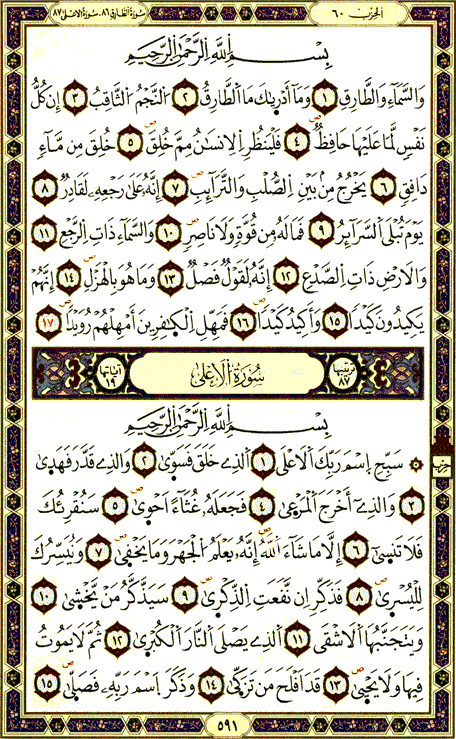 سورة الطارق ٨٦، سورة الاعلى ٨٧
الحزب ٦٠
بِسْمِ اللَّهِ الرَّحْمَٰنِ الرَّحِيمِ
وَالسَّمَاءِ وَالطَّارِقِ ١ وَمَا أَدْرَىٰكَ مَا الطَّارِقُ ٢ النَّجْمُ الثَّاقِبُ ٣ إِن كُلُّ
نَفْسٍ لَمَّا عَلَيْهَا حَافِظٌ ٤ فَلْيَنظُرِ الْإِنسَٰنُ مِمَّ خُلِقَ ٥ خُلِقَ مِن مَّاءٍ
دَافِقٍ ٦ يَخْرُجُ مِنْ بَيْنِ الصُّلْبِ وَالتَّرَائِبِ ٧ إِنَّهُ عَلَىٰ رَجْعِهِ لَقَادِرٌ ٨
يَوْمَ تُبْلَى السَّرَائِرُ ٩ فَمَا لَهُ مِن قُوَّةٍ وَلَا نَاصِرٍ ١٠ وَالسَّمَاءِ ذَاتِ الرَّجْعِ ١١
وَالْأَرْضِ ذَاتِ الصَّدْعِ ١٢ إِنَّهُ لَقَوْلٌ فَصْلٌ ١٣ وَمَا هُوَ بِالْهَزْلِ ١٤ إِنَّهُمْ
يَكِيدُونَ كَيْدًا ١٥ وَأَكِيدُ كَيْدًا ١٦ فَمَهِّلِ الْكَٰفِرِينَ أَمْهِلْهُمْ رُوَيْدًا ١٧
ترتيبها ٨٧ سُورَةُ الْأَعْلَىٰ آياتها ١٩
بِسْمِ اللَّهِ الرَّحْمَٰنِ الرَّحِيمِ
سَبِّحِ اسْمَ رَبِّكَ الْأَعْلَى ١ الَّذِي خَلَقَ فَسَوَّىٰ ٢ وَالَّذِي قَدَّرَ فَهَدَىٰ
٣ وَالَّذِي أَخْرَجَ الْمَرْعَىٰ ٤ فَجَعَلَهُ غُثَاءً أَحْوَىٰ ٥ سَنُقْرِئُكَ
فَلَا تَنسَىٰ ٦ إِلَّا مَا شَاءَ اللَّهُ إِنَّهُ يَعْلَمُ الْجَهْرَ وَمَا يَخْفَىٰ ٧ وَنُيَسِّرُكَ
لِلْيُسْرَىٰ ٨ فَذَكِّرْ إِن نَّفَعَتِ الذِّكْرَىٰ ٩ سَيَذَّكَّرُ مَنْ يَخْشَىٰ ١٠
وَيَتَجَنَّبُهَا الْأَشْقَى ١١ الَّذِي يَصْلَى النَّارَ الْكُبْرَىٰ ١٢ ثُمَّ لَا يَمُوتُ
فِيهَا وَلَا يَحْيَىٰ ١٣ قَدْ أَفْلَحَ مَن تَزَكَّىٰ ١٤ وَذَكَرَ اسْمَ رَبِّهِ فَصَلَّىٰ ١٥
٥٩١